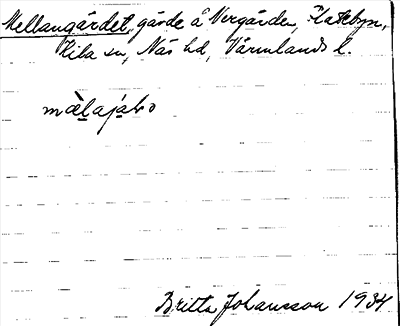 Mellangärdet, gärde å Nergården, Slatebyn,
Kila sn, Näs hd, Värmlands l.
Britta Johansson 1934